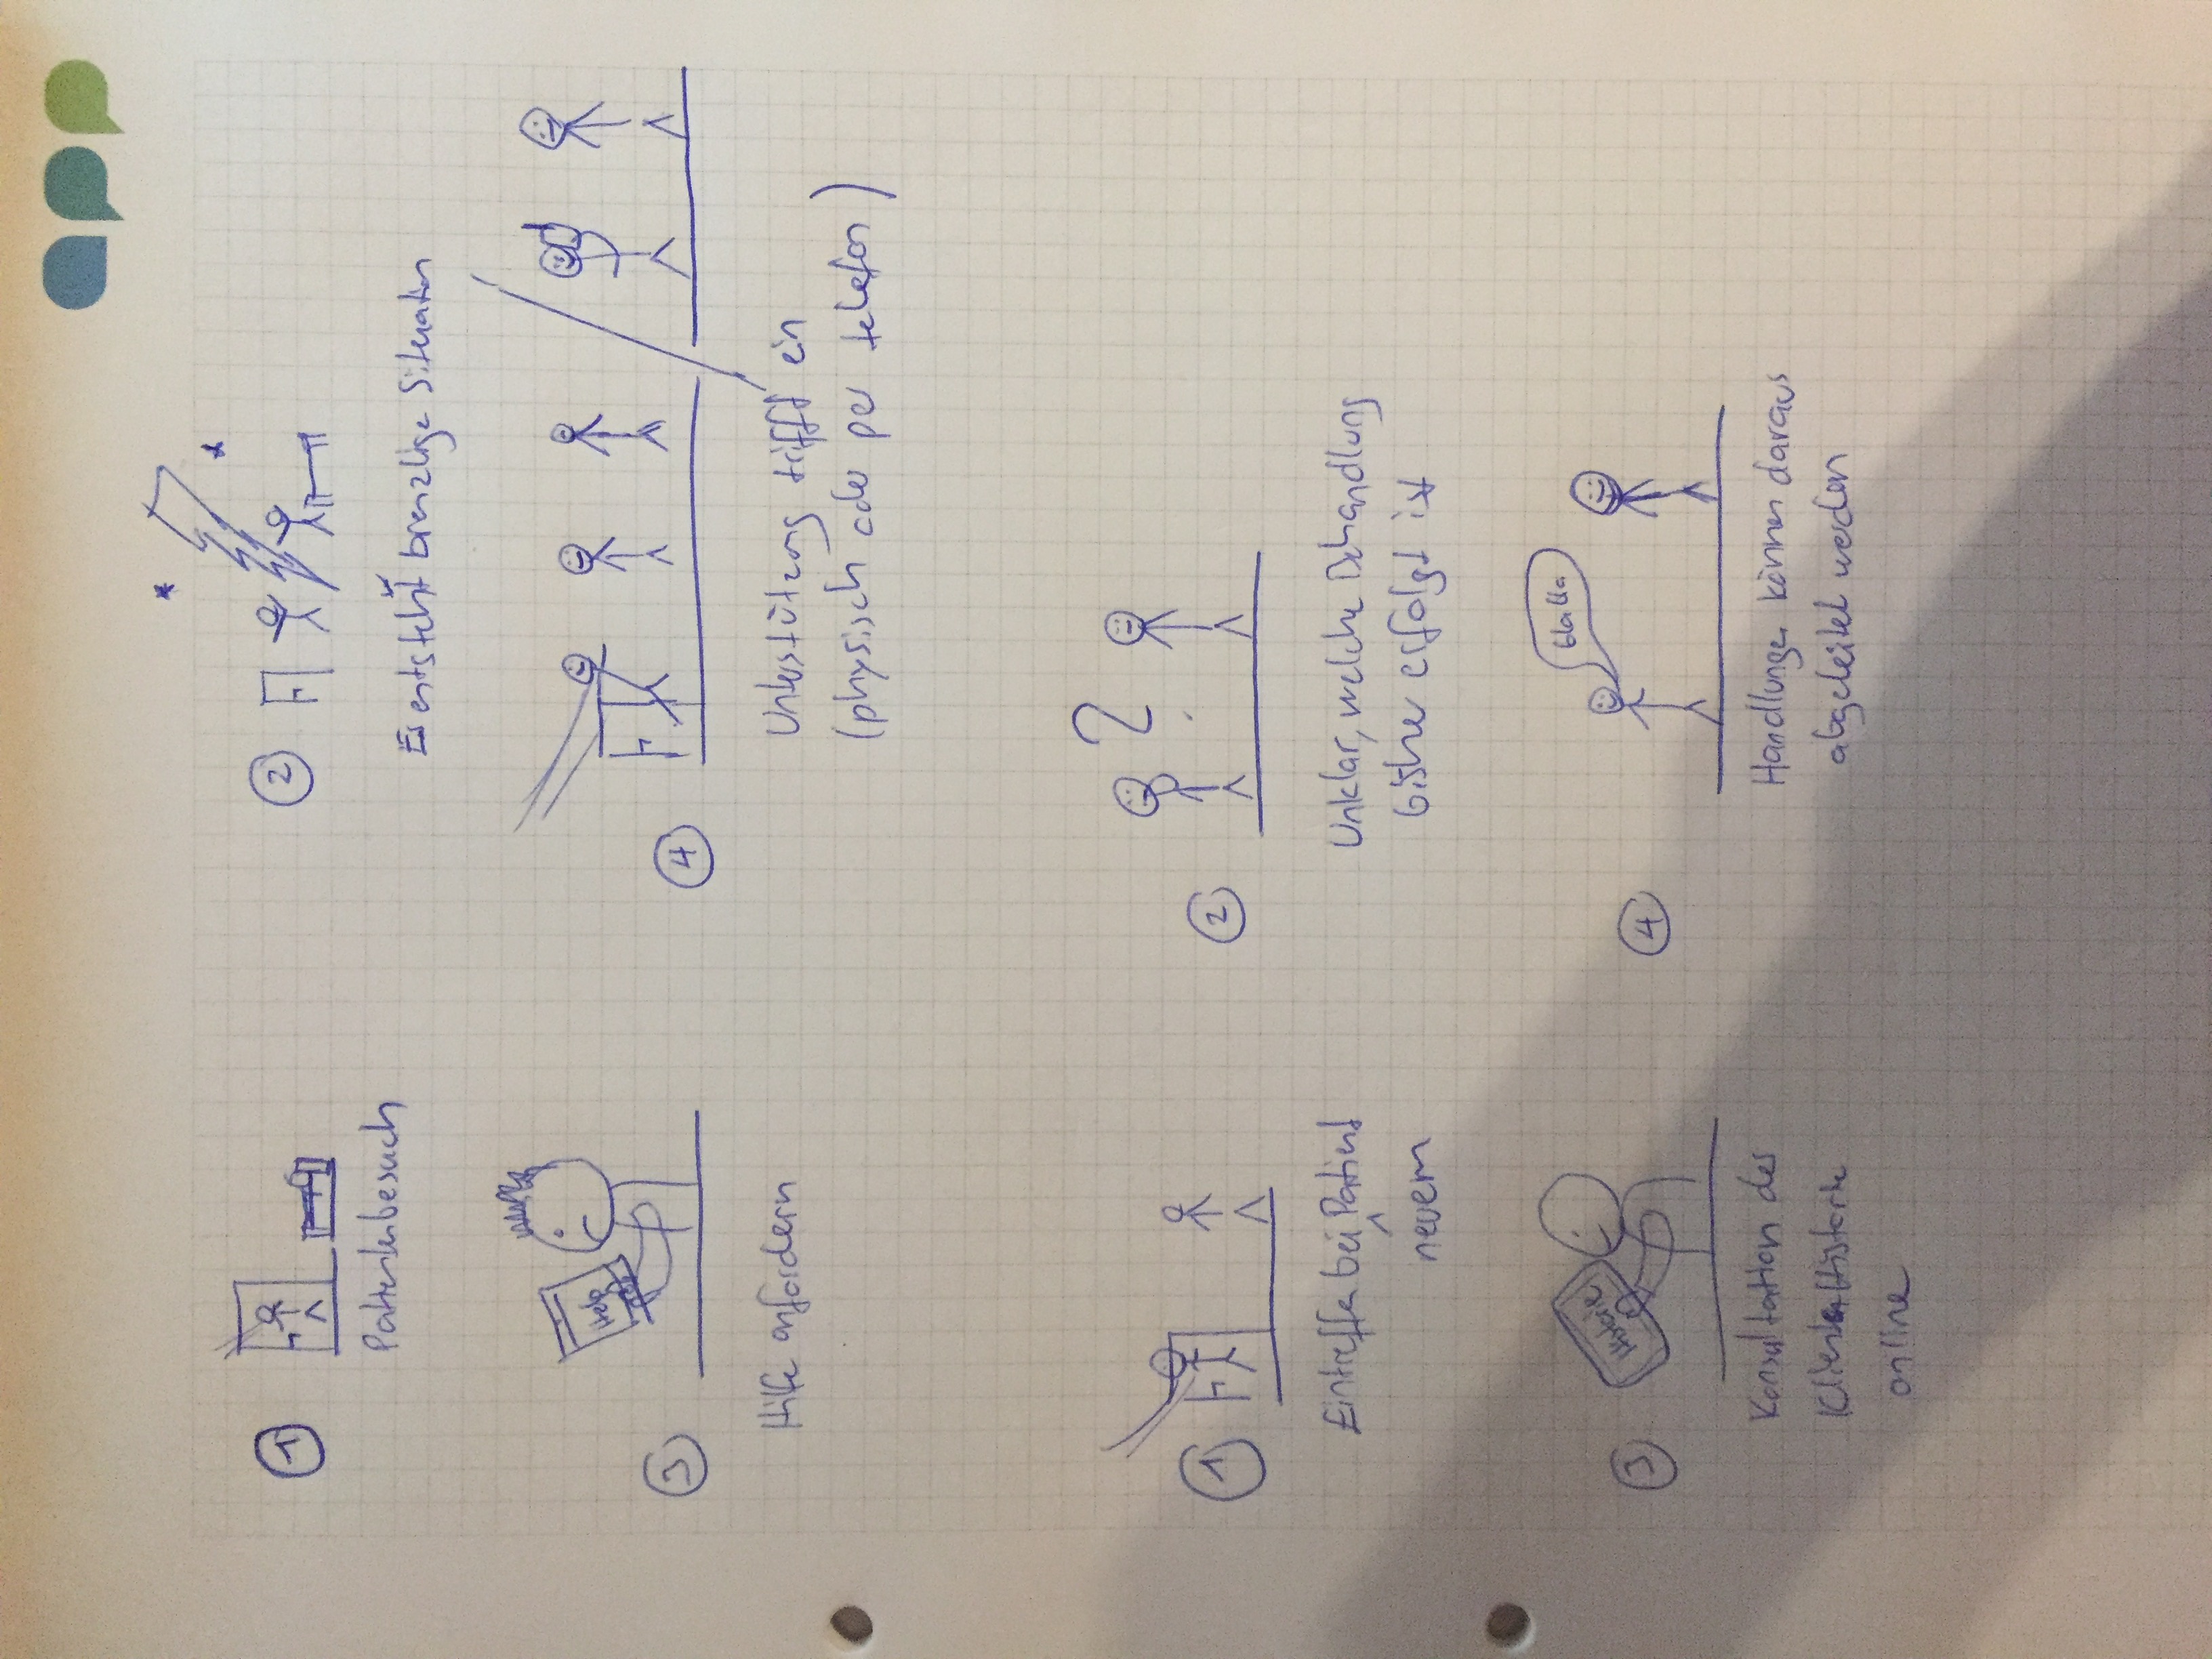 app
1
Patientenbesuch
2
Es entsteht brenzlige Situation
3
Help
Hilfe anfordern
4
Unterstützung trifft ein
(physisch oder per telefon)
1
Eintreffen bei Patient
neuem
2
?
Unklar, welche Behandlung
bisher erfolgt ist
3
Historie
Konsultation der
Klienten Historie
online
4
blabla
Handlungen können daraus
abgeleitet werden